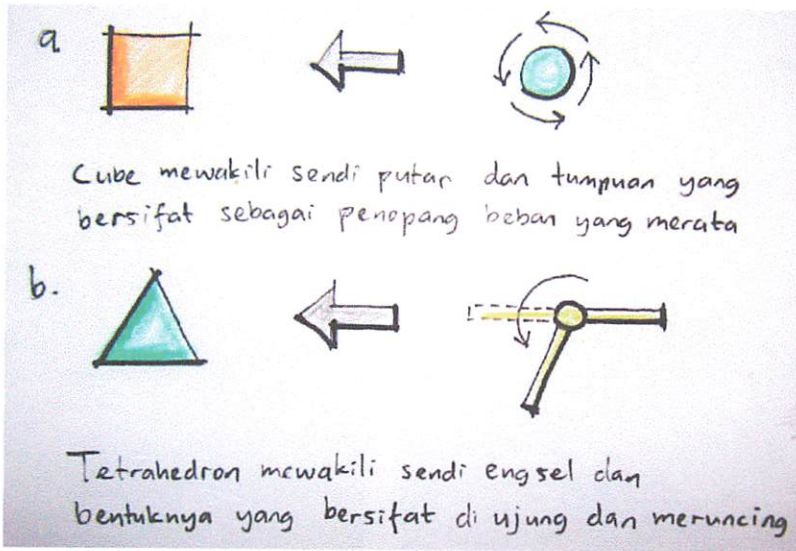 a
Cube mewakili sendi putar dan tumpuan yang
bersifat sebagai penopang beban yang merata
b.
Tetrahedron mewakili sendi engsel dan
bentuknya yang bersifat di ujung dan meruncing